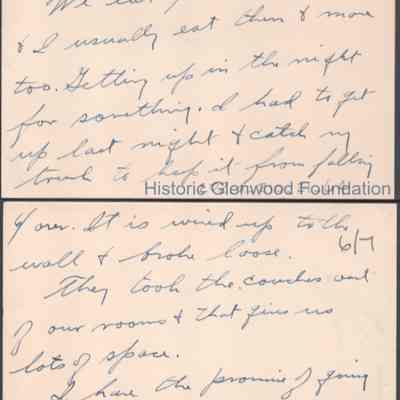 We eat
& I usually eat them & more
too. Getting up in the night
for something. I had to get
up last night & catch my
trunk to keep it from falling
Historic Glenwood Foundation
over. It is wired up to the
6/7
wall & broke loose.
They took the couches out
of our rooms & that gives us
lots of space.
I have the promise of going